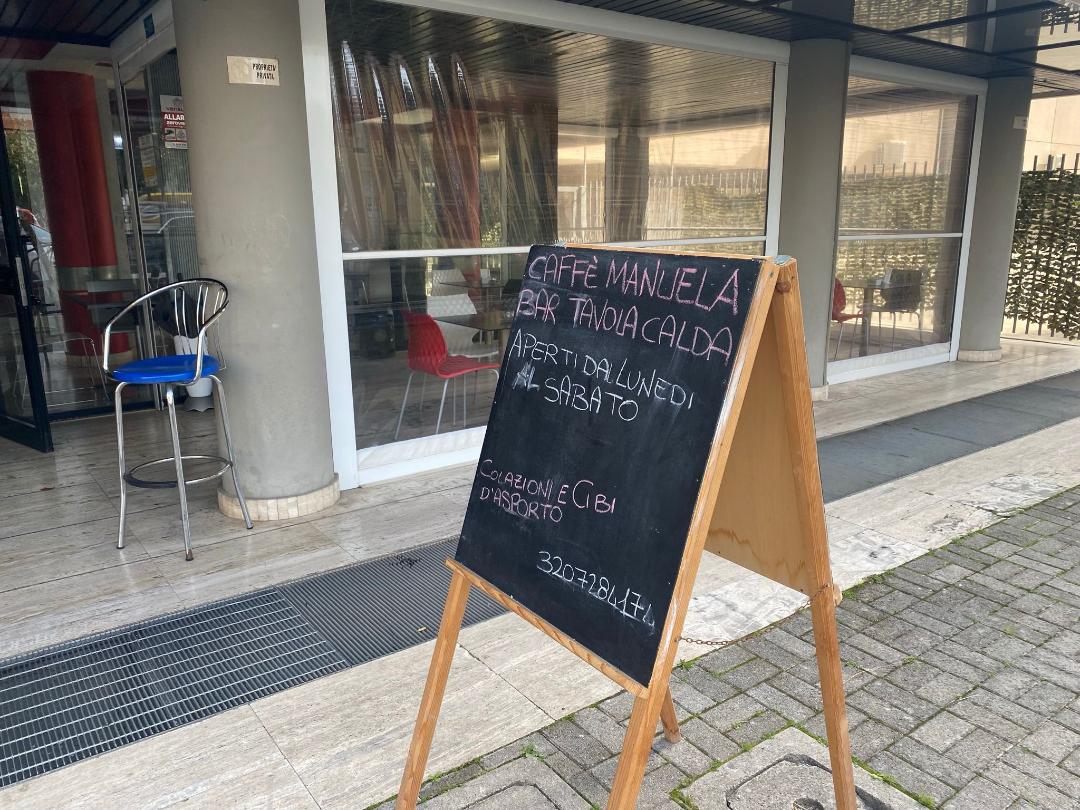 PROPRIETA'
PRIVATA
CAFFÈ MANUELA
BAR TAVOLA CALDA
APERTI DAL LUNEDI
AL SABATO
COLAZIONI E CIBI
D'ASPORTO
3207284174